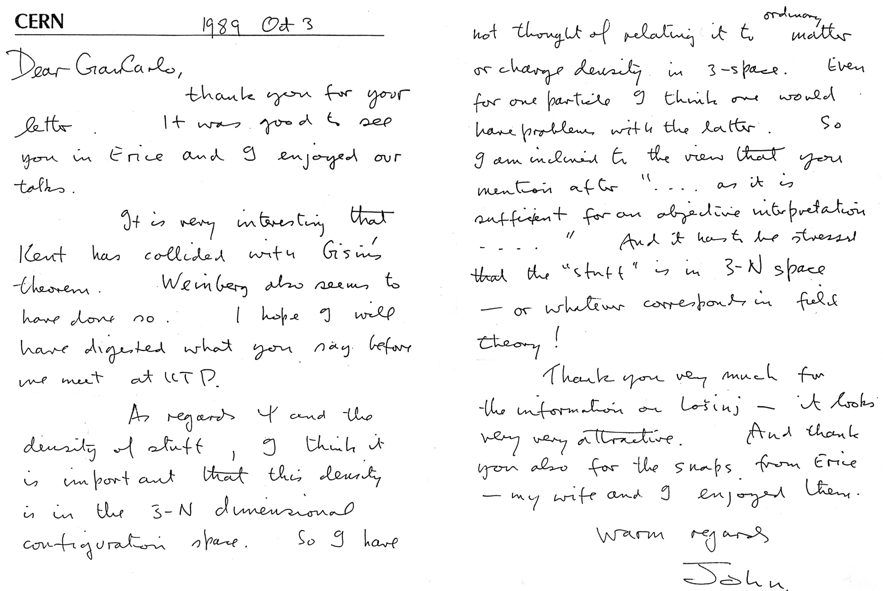 CERN 1989 Oct 3
Dear GianCarlo,
thank you for your
letter. It was good to see
you in Erice and I enjoyed our
talks.
It is very interesting that
Kent has collided with Gisin's
theorem. Weinberg also seems to
have done so. I hope I will
have digested what you say before
we meet at ICTP.
As regards Ψ and the
density of stuff, I think it
is important that this density
is in the 3-N dimensional
configuration space. So I have
not thought of relating it to ordinary matter
or charge density in 3-space. Even
for one particle I think one would
have problems with the latter. So
I am inclined to the view that you
mention after ".... as it is
sufficient for an objective interpretation
.... " And it has to be stressed
that the "stuff" is in 3-N space
— or whatever corresponds in field
theory!
Thank you very much for
the information on Lošinj — it looks
very very attractive. And thank
you also for the snaps from Erice
— my wife and I enjoyed them.
Warm regards
John.